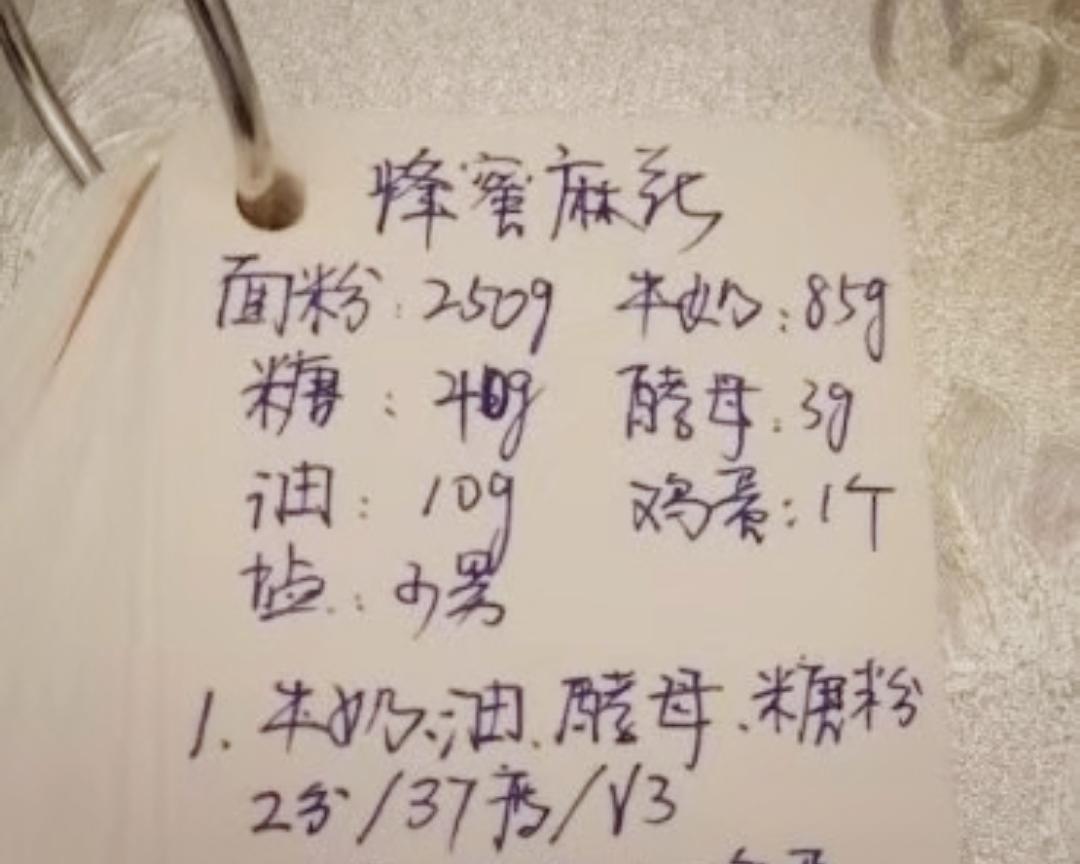 蜂蜜麻花
面粉:250g 牛奶:85g
糖:40g 酵母:3g
油:10g 鸡蛋:1个
盐:少男
1.牛奶、油、酵母、糖粉
2分/37度/V3